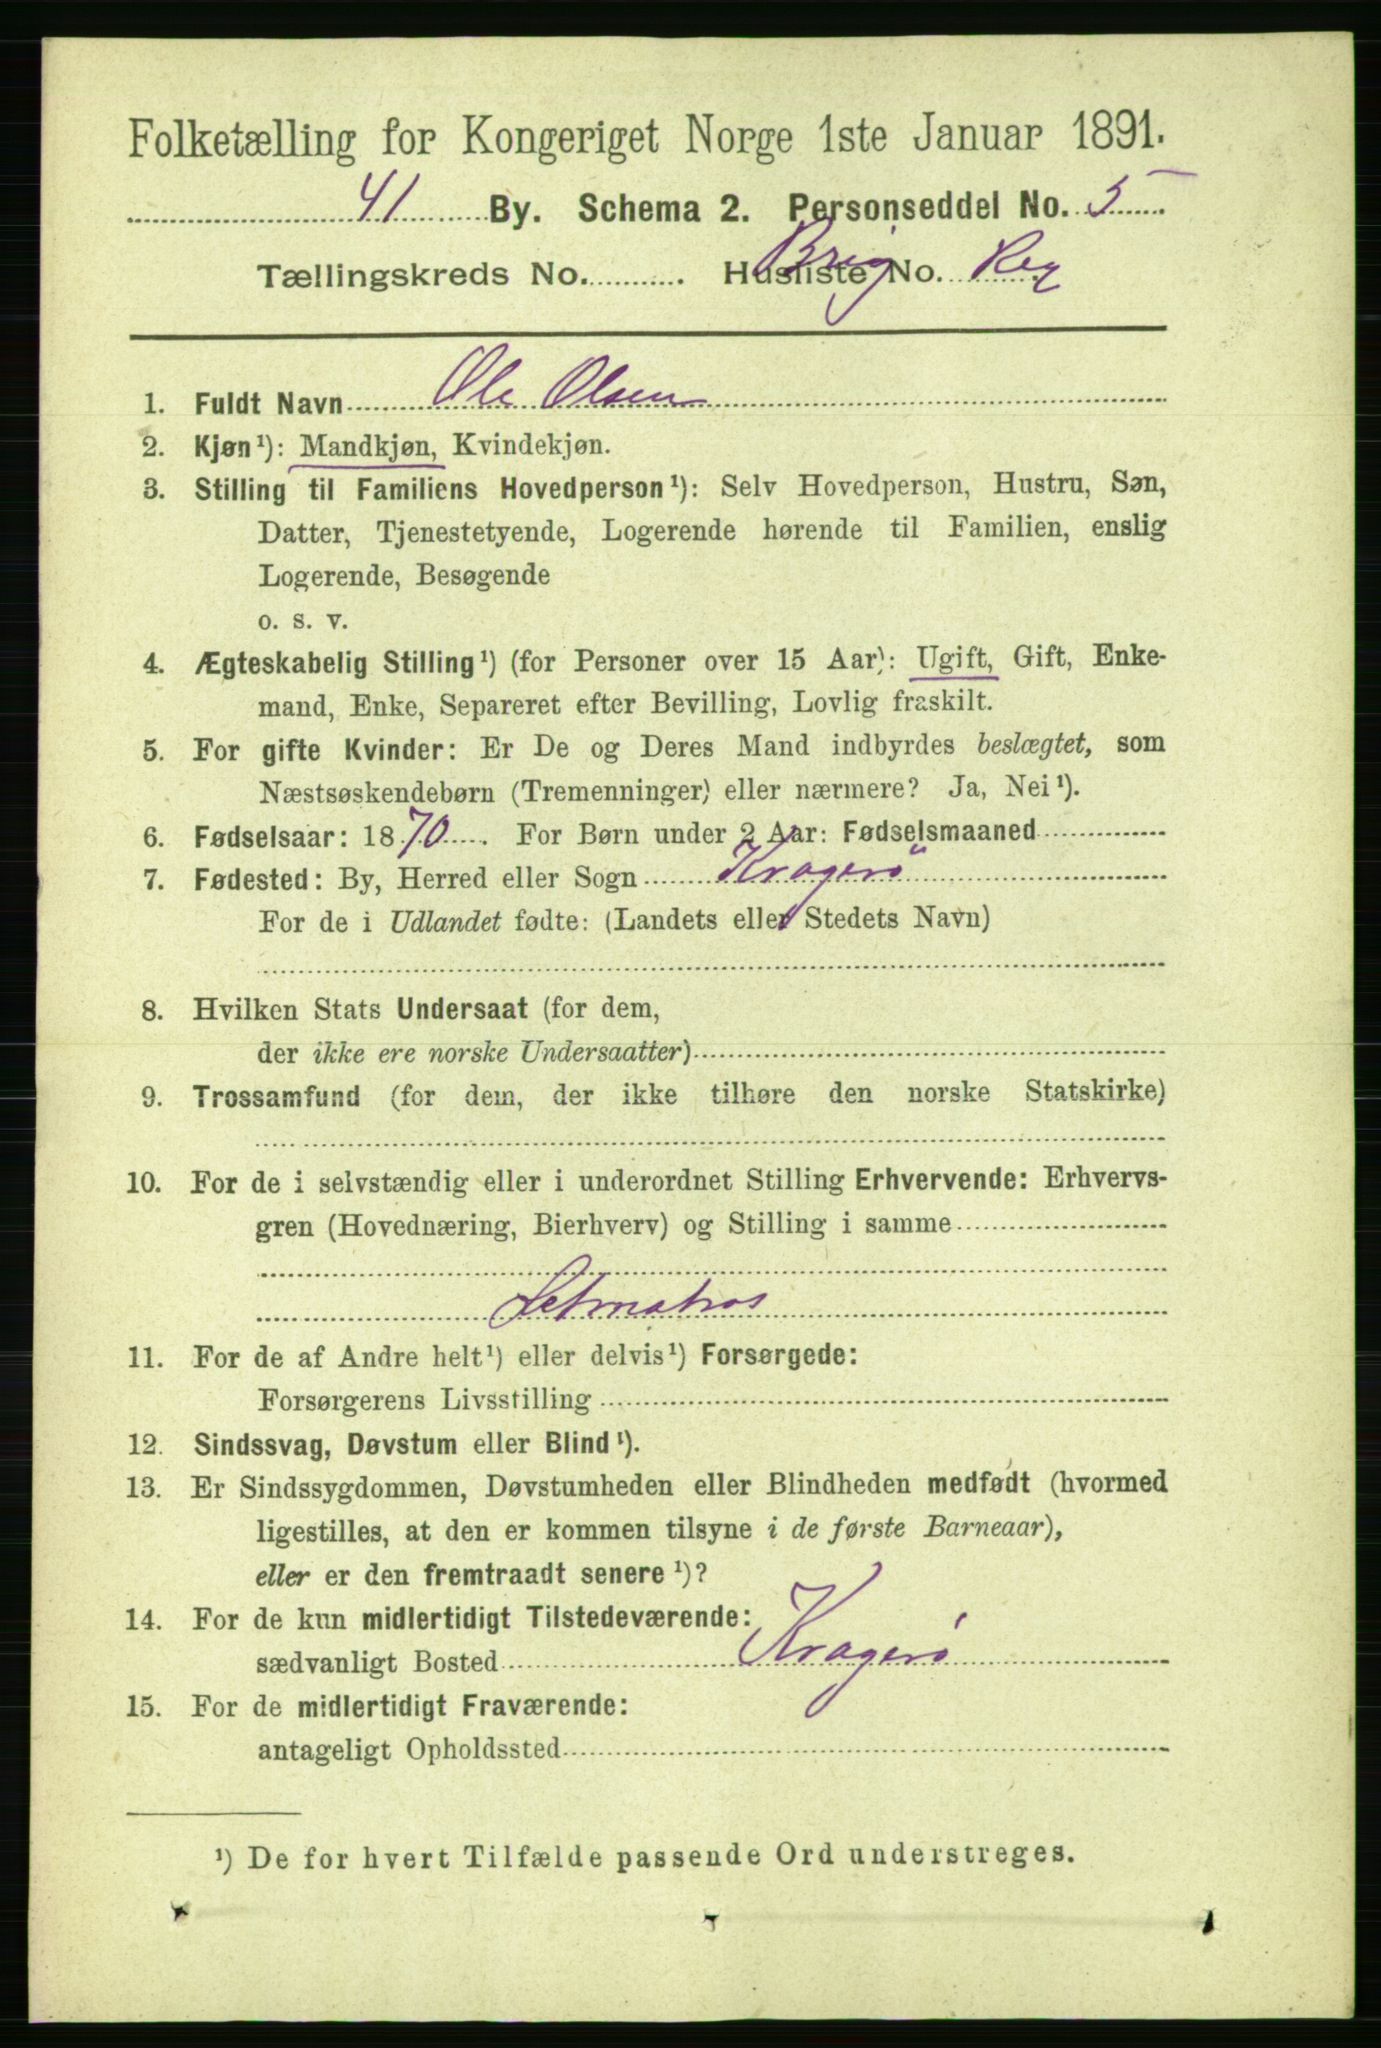 Folketælling for Kongeriget Norge 1ste Januar 1891.
41 By. Schema 2. Personseddel No. 5
Tællingskreds No. Husliste No. Brig Rex
1. Fuldt Navn Ole Olsen
2. Kjøn¹): Mandkjøn, Kvindekjøn.
3. Stilling til Familiens Hovedperson¹): Selv Hovedperson, Hustru, Søn,
Datter, Tjenestetyende, Logerende hørende til Familien, enslig
Logerende, Besøgende
o. s. v.
4. Ægteskabelig Stilling¹) (for Personer over 15 Aar): Ugift, Gift, Enke-
mand, Enke, Separeret efter Bevilling, Lovlig fraskilt.
5. For gifte Kvinder: Er De og Deres Mand indbyrdes beslægtet, som
Næstsøskendebørn (Tremenninger) eller nærmere? Ja, Nei¹).
6. Fødselsaar: 1870. For Børn under 2 Aar: Fødselsmaaned
7. Fødested: By, Herred eller Sogn Kragerö
For de i Udlandet fødte: (Landets eller Stedets Navn)
8. Hvilken Stats Undersaat (for dem,
der ikke ere norske Undersaatter)
9. Trossamfund (for dem, der ikke tilhøre den norske Statskirke)
10. For de i selvstændig eller i underordnet Stilling Erhvervende: Erhvervs-
gren (Hovednæring, Bierhverv) og Stilling i samme
Letmatros
11. For de af Andre helt¹) eller delvis¹) Forsørgede:
Forsørgerens Livsstilling
12. Sindssvag, Døvstum eller Blind¹).
13. Er Sindssygdommen, Døvstumheden eller Blindheden medfødt (hvormed
ligestilles, at den er kommen tilsyne i de første Barneaar),
eller er den fremtraadt senere¹)?
14. For de kun midlertidigt Tilstedeværende:
sædvanligt Bosted Kragerö
15. For de midlertidigt Fraværende:
antageligt Opholdssted
¹) De for hvert Tilfælde passende Ord understreges.